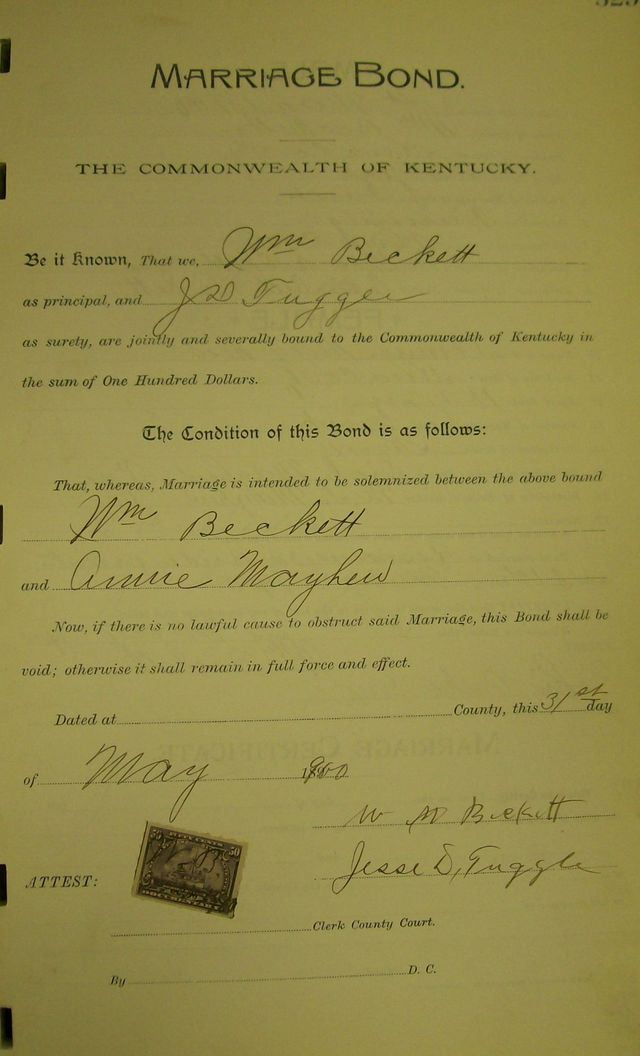 MARRIAGE BOND.
THE COMMONWEALTH OF KENTUCKY.
Be it Known, That we, Wm Beckett
as principal, and J D Tuggle
as surety, are jointly and severally bound to the Commonwealth of Kentucky in
the sum of One Hundred Dollars.
The Condition of this Bond is as follows:
That, whereas, Marriage is intended to be solemnized between the above bound
Wm Beckett
and Annie Mayhew
Now, if there is no lawful cause to obstruct said Marriage, this Bond shall be
void; otherwise it shall remain in full force and effect.
Dated at County, this 31st day
of May 1900
W M Beckett
Jesse D, Tuggle
FIFTY CENTS
50 50
DOCUMENTARY
ATTEST:
Clerk County Court.
By D. C.